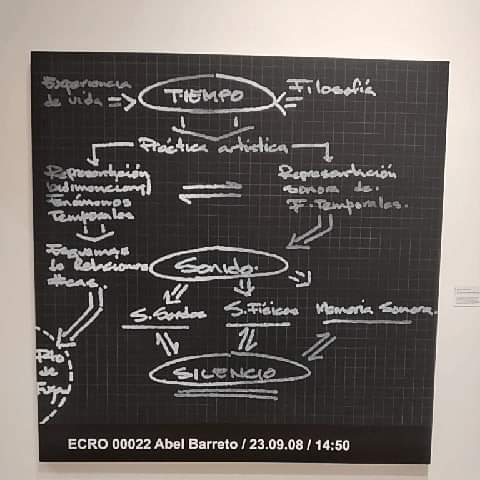 Experiencia
de vida
TIEMPO
Filosofía
Práctica artística
Representación
bidimencional
Fenómenos
Temporales
Representación
sonora de
F. Temporales.
Esquemas
de Relaciones
Sonido.
S. Sordos
S. Físicos
Memoria Sonora.
SILENCIO
Pto
de
Fuga
ECRO 00022 Abel Barreto / 23.09.08 / 14:50